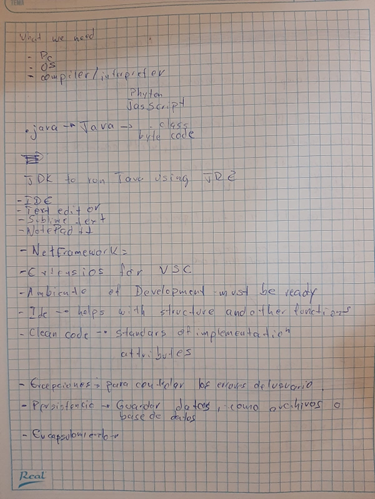 What we need
- PC
- OS
- compiler/interpreter
Phyton
JavaScript
. java → Java → class
byte code
JDK to run Java using JRE
- IDE
- Text editor
- Sublime text
- NotePad ++
- Net Framework:
- Extensios for VSC
- Ambiente of Development must be ready
- Ide → helps with structure and other functions
- Clean code → standars of implementation
attributes
- Excepciones → para controlar los errores del usuario.
- Persistencia → Guardar datos, como archivos o
base de datos
- Encapsulamiento
Real